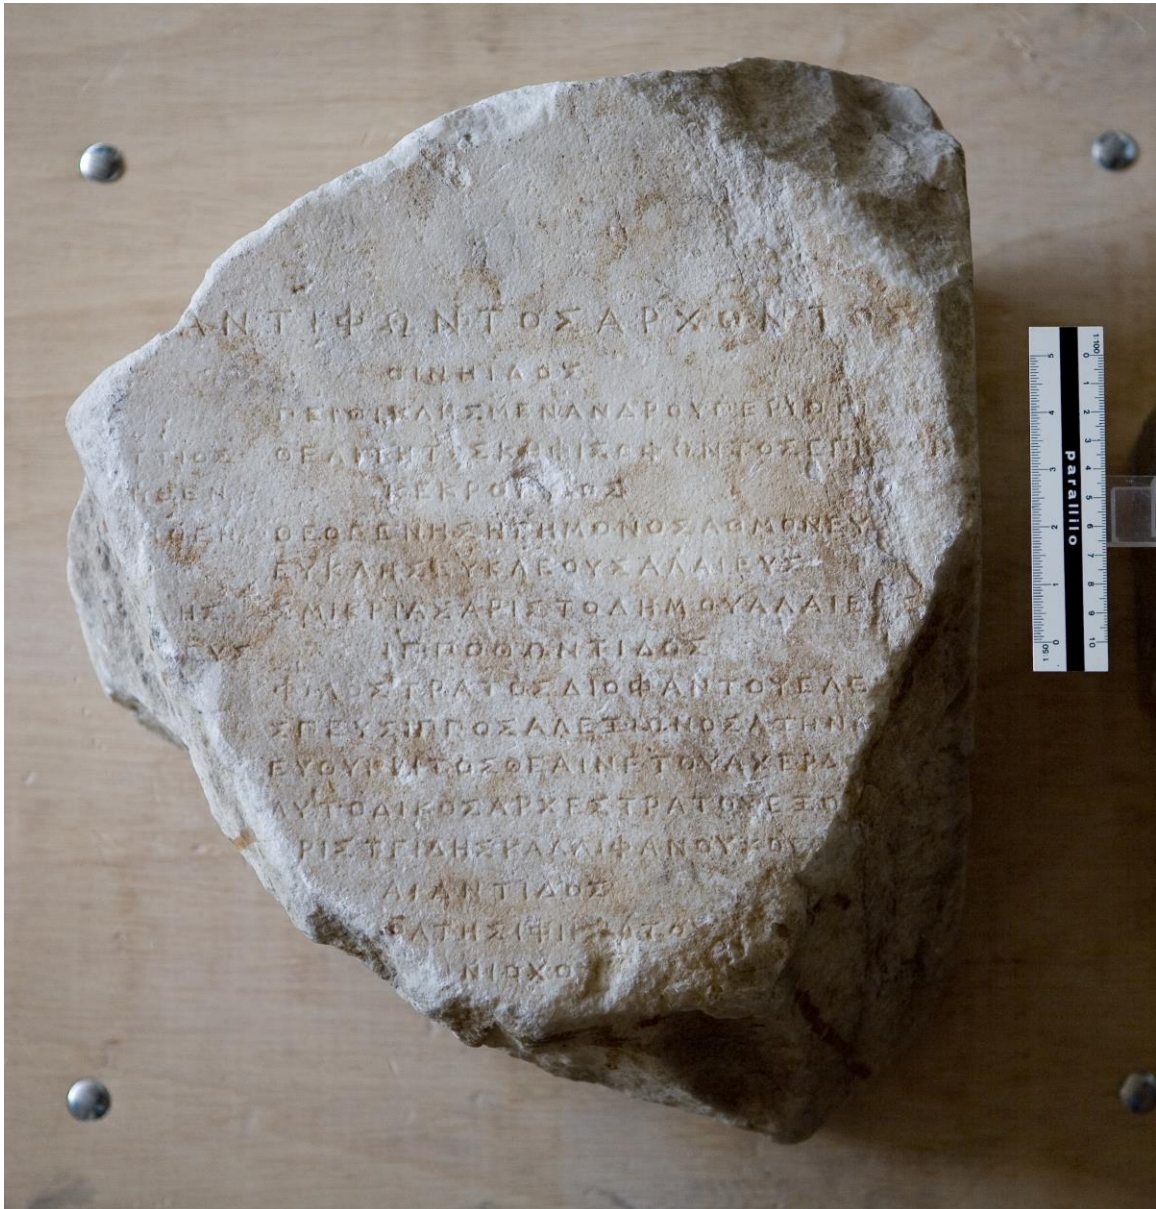 ΑΝΤΙΦΩΝΤΟΣΑΡΧΟΝΤΟΣ
ΟΙΝΗΙΔΟΣ
ΠΕΙΘΙΚΛΗΣΜΕΝΑΝΔΡΟΥΠΕΡΙΘΟΙ
ΠΟΣ ΘΕΑΙΤΗΤΟΣΚΗΦΙΣΟΦΩΝΤΟΣΕΠΙ
ΘΕΝ ΚΕΚΡΟΠΙΔΟΣ
ΘΕΝ ΘΕΟΓΕΝΗΣΗΓΗΜΟΝΟΣΑΘΜΟΝΕΥ
ΕΥΚΛΗΣΕΥΚΛΕΟΥΣΑΛΑΙΕΥΣ
ΗΣ ΣΜΙΚΡΙΑΣΑΡΙΣΤΟΔΗΜΟΥΑΛΑΙΕΥΣ
ΕΥΣ ΙΠΠΟΘΩΝΤΙΔΟΣ
ΦΙΛΟΣΤΡΑΤΟΣΔΙΟΦΑΝΤΟΥΕΛΕ
ΣΠΕΥΣΙΠΠΟΣΑΛΕΞΙΩΝΟΣΑΖΗΝΙ
ΕΥΘΥΚΡΙΤΟΣΘΕΑΙΝΕΤΟΥΑΧΕΡΔ
ΑΥΤΟΔΙΚΟΣΑΡΧΕΣΤΡΑΤΟΥΕΞΟ
ΡΙΣΤΕΙΔΗΣΚΑΛΛΙΦΑΝΟΥΚΟ
ΑΙΑΝΤΙΔΟΣ
ΡΑΤΗΣΙΦΙΚΡΑΤΟΥ
ΝΙΟΧΟ
1:100
0 1 2 3 4 5 6 7 8 9 10
parallilo
5 4 3 2 1 0
1:50